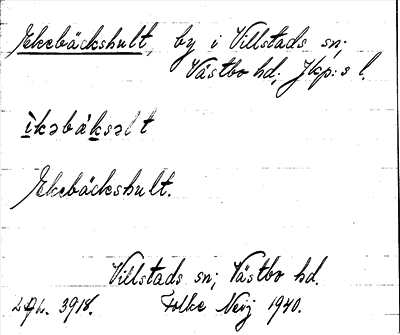 Ekebäckshult, by i Villstads sn;
Västbo hd; Jkp:s l.
ìkəbàksəlt
Ekebäckshult.
Villstads sn; Västbo hd.
3918. Folke Neij 1940.